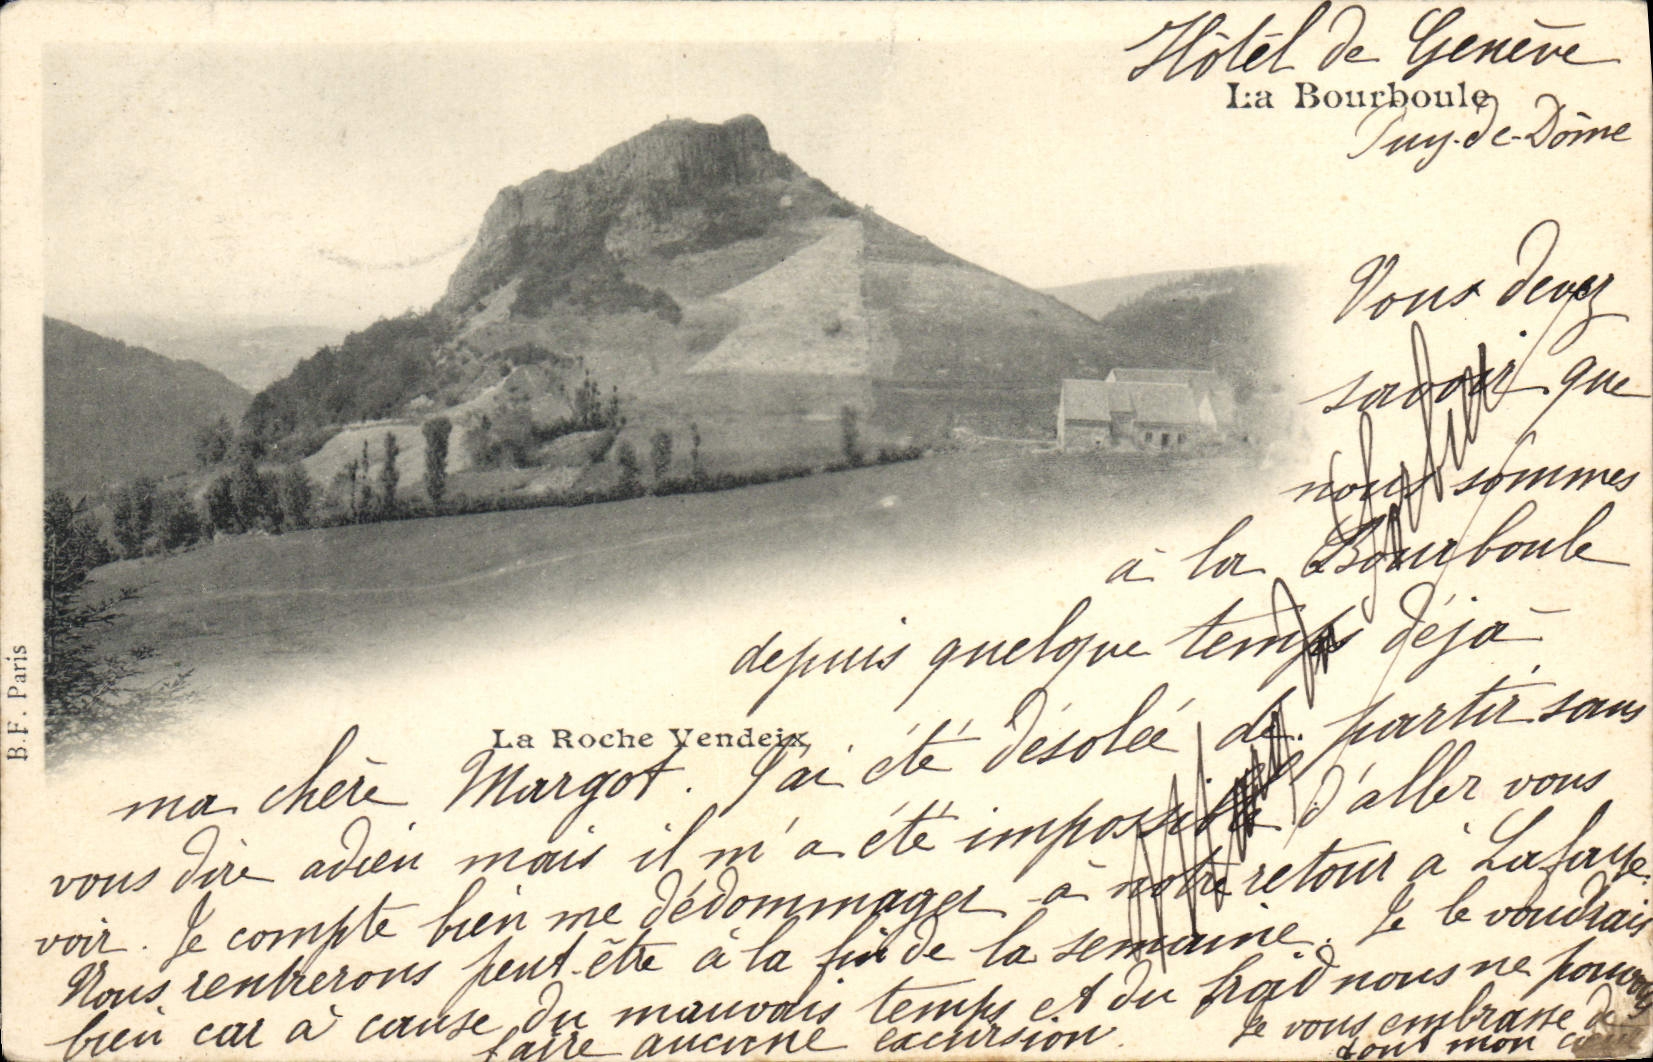 Hôtel de Genève
La Bourboule
Puy-de-Dôme
Vous devez
savoir que
nous sommes
à la Bourboule
depuis quelque temps déjà
La Roche Vendeix
B.F. Paris
ma chère Margot. J'ai été désolée de partir sans
vous dire adieu mais il m'a été impossible d'aller vous
voir. Je compte bien me dédommager à notre retour à Lafaye.
Nous rentrerons peut-être à la fin de la semaine. Je le voudrais
bien car à cause du mauvais temps et du froid nous ne pouvons
faire aucune excursion. Je vous embrasse de
tout mon cœur